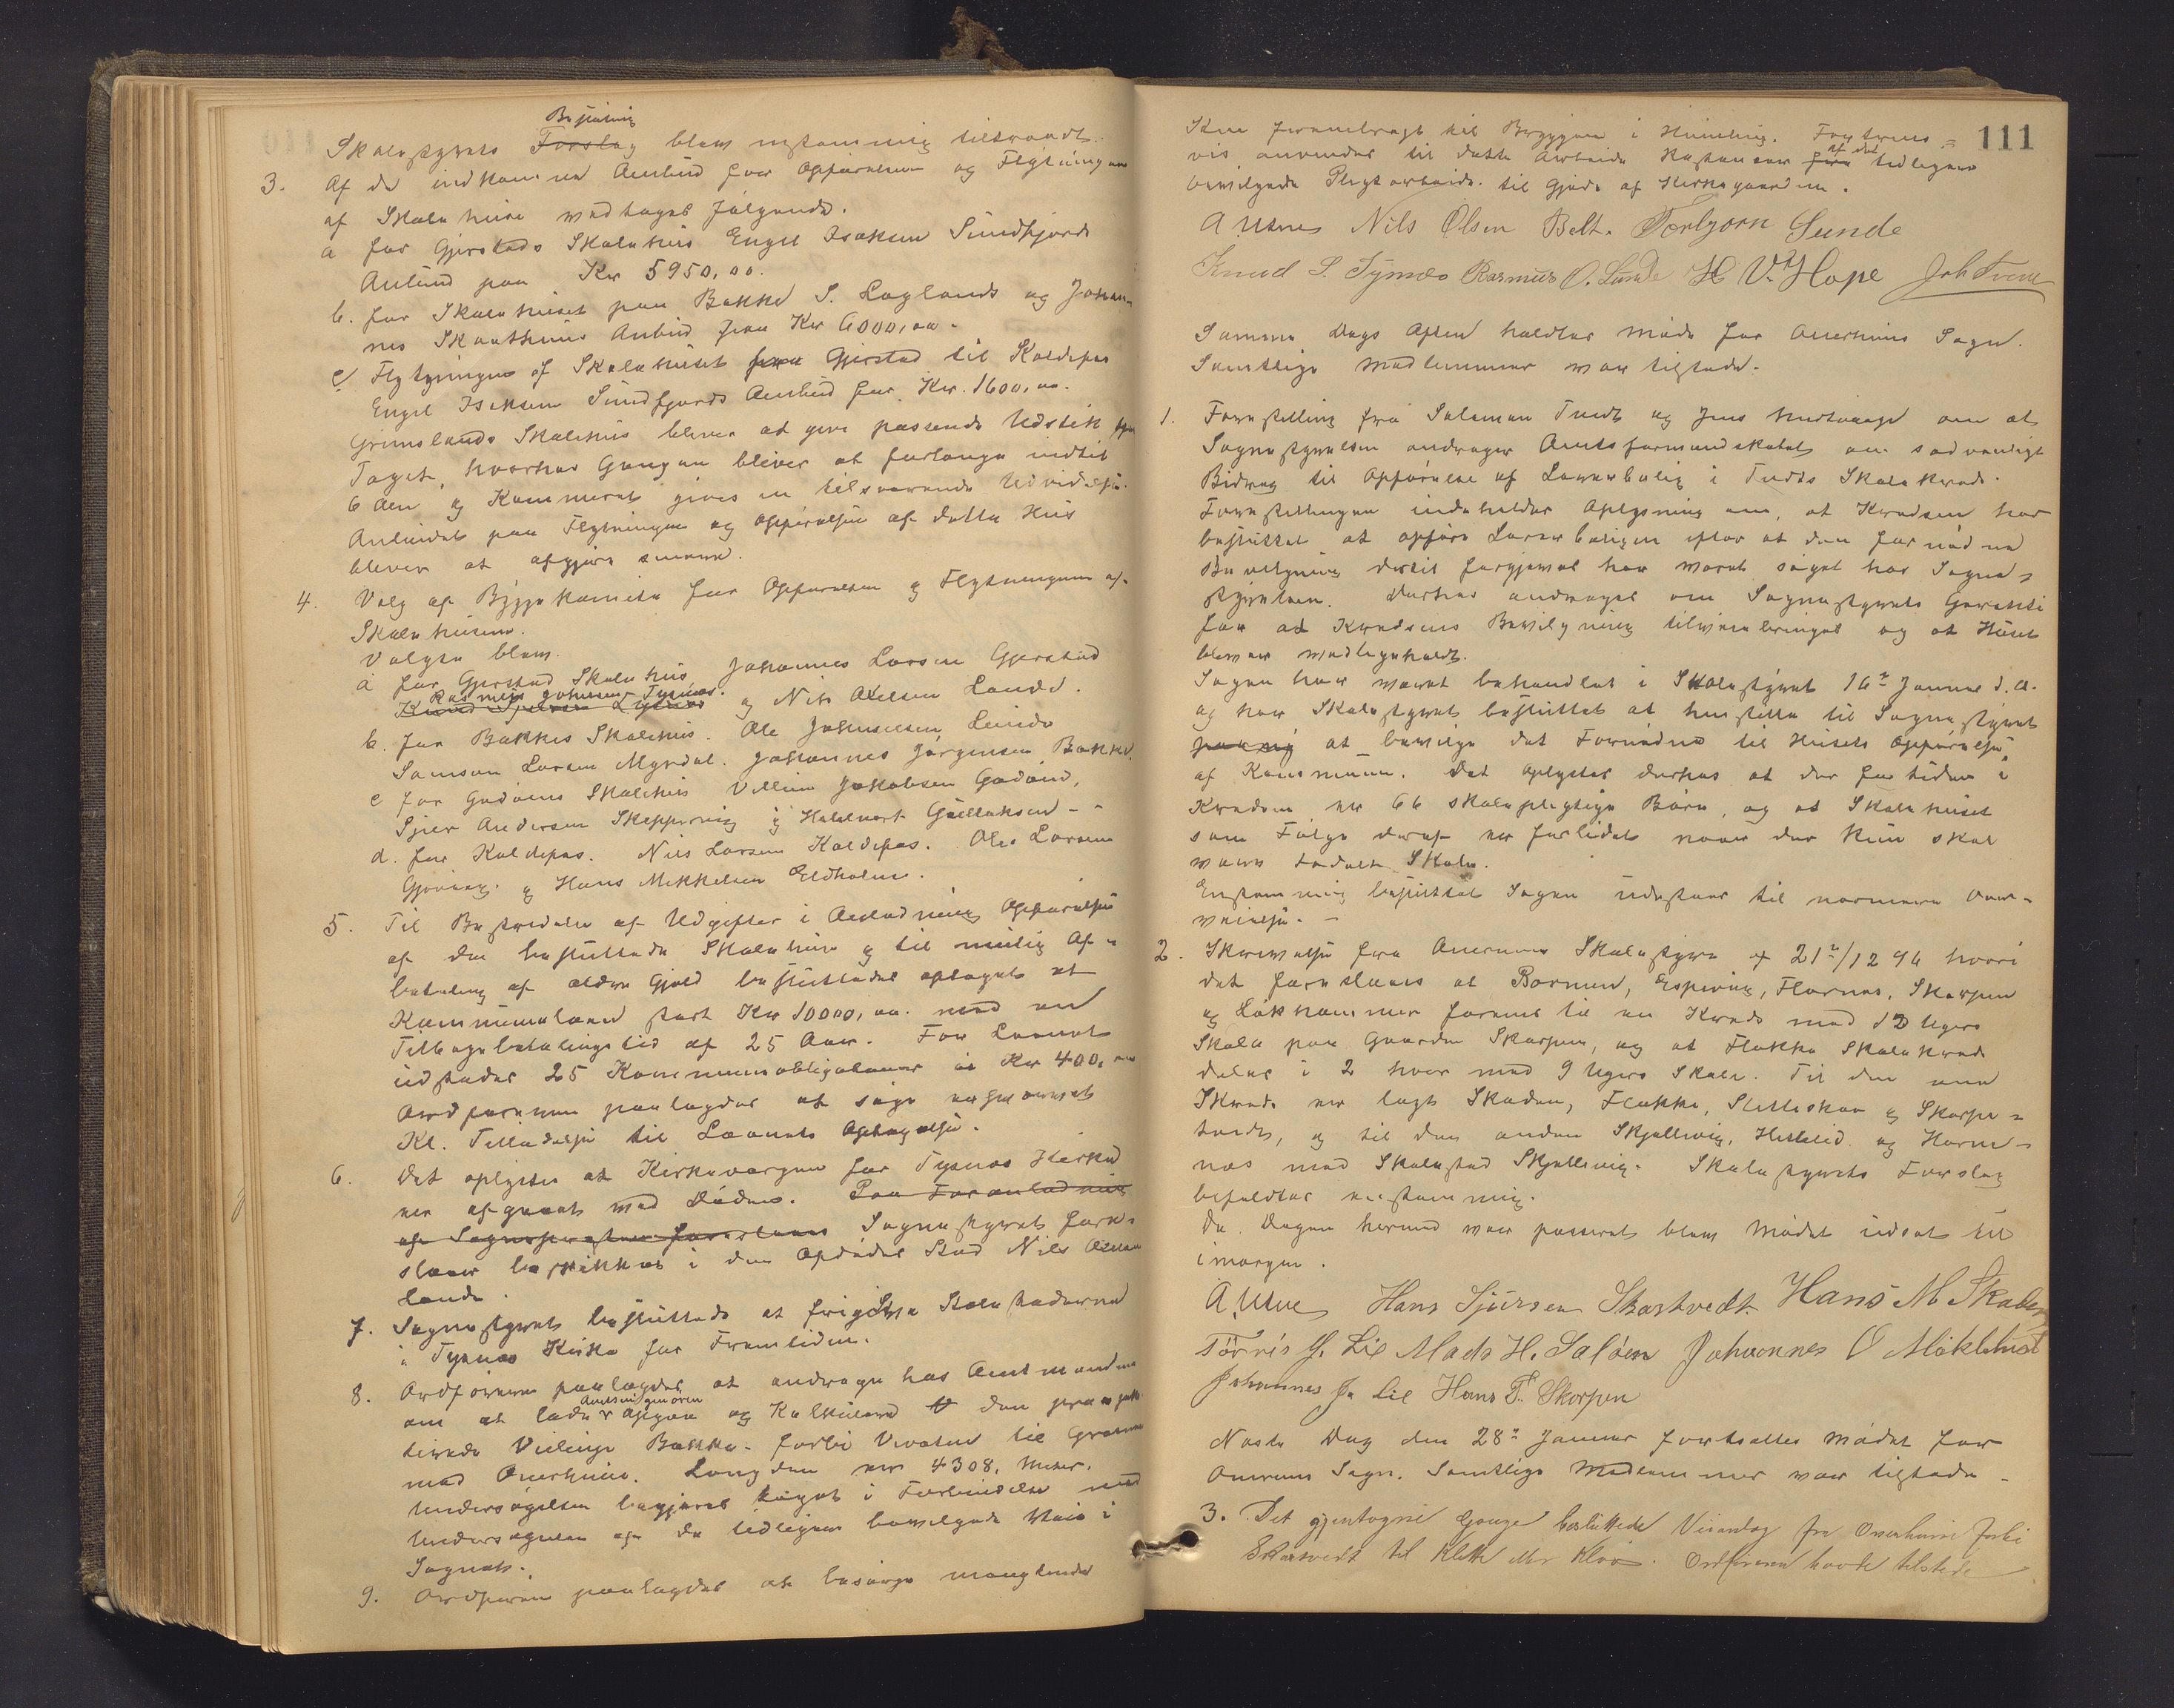 Beslutning
Skolestyrets Forslag blev enstemmig tiltraadt.
3. Af de indkomne Anbud for Opførelsen og Flytningen
af Skolehuse vedtages følgende.
a for Gjerstads Skolehus Engel Isaksen Sundfjords
Anbud paa Kr 5950,00.
b. for Skolehuset paa Bakke S. Laglands og Johan-
nes Skaathuns Anbud paa Kr 6000,00.
c Flytningen af Skolehuset fra Gjerstad til Koldepas
Engel Isaksen Sundfjords Anbud for Kr. 1600,00.
Grimslands Skolehus bliver at give passende Udstik fra
Taget, hvorhos Gangen bliver at forlænge indtil
6 Alen og Kammeret gives en tilsvarende Udvidelse.
Anbudet paa Flytningen og Opførelse af dette Hus
bliver at afgjøre senere.
4. Valg af Byggekomite for Opførelsen og Flytningen af
Skolehusene.
Valgte blev.
a for Gjerstad Skolehus Johannes Larsen Gjerstad
Rasmus Johnsen Tysnes. og Nils Axelsen Lande.
b. for Bakkes Skolehus. Ole Johannesen Lunde
Samson Larsen Myrdal. Johannes Jørgensen Bakke.
c for Godøens Skolehus Villum Jakobsen Godøen,
Sjur Andersen Skeppevig og Haldvart Gullaksen -
d. for Koldepas. Nils Larsen Koldepas. Ole Larsen
Gjøvaag. og Hans Mikkelsen Eldholm.
5. Til Bestridelse af Udgifter i Anledning Opførelse
af de besluttede Skolehuse og til mulig Af-
betaling af ældre Gjæld besluttedes optaget et
Kommunelaan stort Kr 10000,00. med en
Tilbagebetalingstid af 25 Aar. For Laanet
udstedes 25 Kommuneobligationer a Kr 400,00
Ordføreren paalægdes at søge
Kl. Tilladelse til Laanets Optagelse.
6. Det oplystes at Kirkeværgen for Tysnes Kirke
er afgaaet med Døden. Paa Foranledning
af Sogneprestens Sognestyret fore-
slaar beskikket i den Afdødes Sted Nils Axelsen
Lande.
7. Sognestyret besluttede at frigive Stolestaderne
i Tysnes Kirke for Fremtiden.
8. Ordføreren paalægdes at andrage hos Amtmanden
om at lade Amtsingeniøren opgaa og Kalkulere den projek-
terede Veilinje Bakke - forbi Vevatne til Grænsen
med Onerheim. Længden er 4308, Meter.
Undersøgelsen begjæres taget i Forbindelse med
Undersøgelse af de tidligere bevilgede Veie i
Sognet.
9. Ordføreren paalægdes at besørge manglende
111
Sten frembragt til Bryggen i Hunding. Fortrins-
vis anvendes til dette Arbeide Restancer af det tidligere
bevilgede Pligtarbeide til Gjærde af Kirkegaarden.
A Utne Nils Olsen Belt. Torbjørn Lunde
Knud S. Tysnes Rasmus O. Lunde H V. Hope Joh Tveit
Samme Dags Aften holdtes Møde for Onerheims Sogn.
Samtlige Medlemmer var tilstede.
1. Forestilling fra Salamon Tvedt og Jens Hertvaage om at
Sognestyrelsen andrager Amtsformandskabet om sædvanligt
Bidrag til Opførelse af Lærerbolig i Tvedts Skolekreds.
Forestillingen indeholder Oplysning om, at Kredsen har
besluttet at opføre Lærerboligen efter at den fornødne
Bevilgning dertil forgjæves har været søgt hos Sogne-
styrelsen. Derhos andrages om Sognestyrets Garanti
for at Kredsens Bevilgning tilveiebringes og at Huset
bliver vedligeholdt.
Sagen har været behandlet i Skolestyret 16de Januar d. A.
og har Skolestyret besluttet at henstille til Sognestyret
at bevilge det Fornødne til Husets Opførelse
af Kommunen. Det oplystes derhos at der for tiden i
Kredsen er 66 skolepligtige Børn, og at Skolehuset
som Følge deraf er forlidet naar der kun skal
være todelt Skole.
Enstemmig besluttet Sagen udstaar til nærmere Over-
veielse. -
2. Skrivelse fra Onerheims Skolestyre af 21de/12 94 hvori
det foreslaaes at Bornen, Espevig, Flornes, Skorpen
og Løkhammer forenes til en Kreds med 12 Ugers
Skole paa Gaarden Skorpen, og at Flakke Skolekreds
deles i 2 hver med 9 Ugers Skole. Til den ene
Kreds er lagt Skaden, Flakke, Sletteskar og Skorpe-
tvedt, og til den anden Skjellevig, Hestelid og Horne-
nes med Skolested Skjellevig. Skolestyrets Forslag
bifaldtes enstemmig.
Da Dagen hermed var passeret blev Mødet udsat til
imorgen.
A Utne Hans Sjursen Skartvedt Hans M Skaden
Tørris J. Lie Mads H. Saløen Johannes O Møklebust
Johannes J. Lie Hans T. Skorpen
Næste Dag den 28de Januar fortsattes Mødet for
Onerheims Sogn. Samtlige Medlemmer var tilstede -
3. Det gjentogne Gange besluttede Veianlæg fra Onerheim forbi
Skartvedt til Kletta eller Kloo. Ordføreren havde tilstede